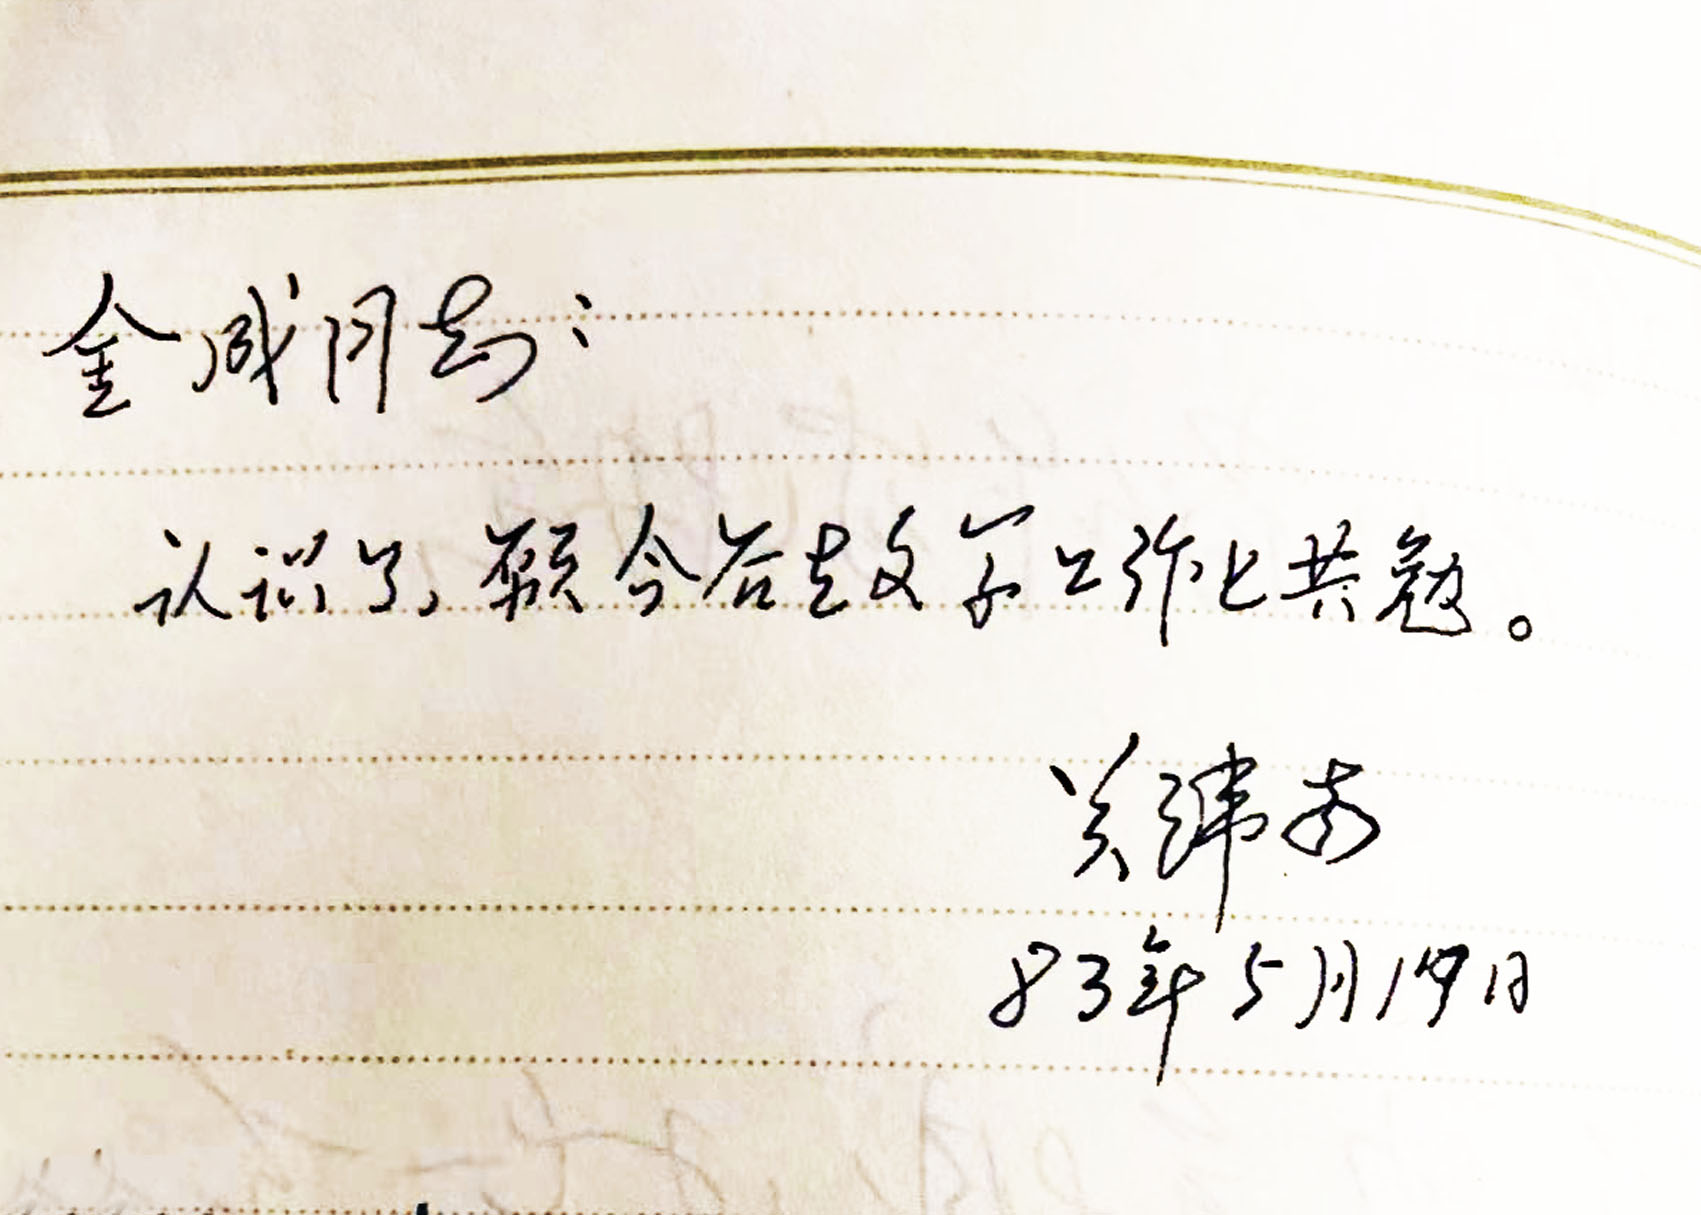 金成同志：
认识了，愿今后在文字工作上共勉。
关
83年5月19日